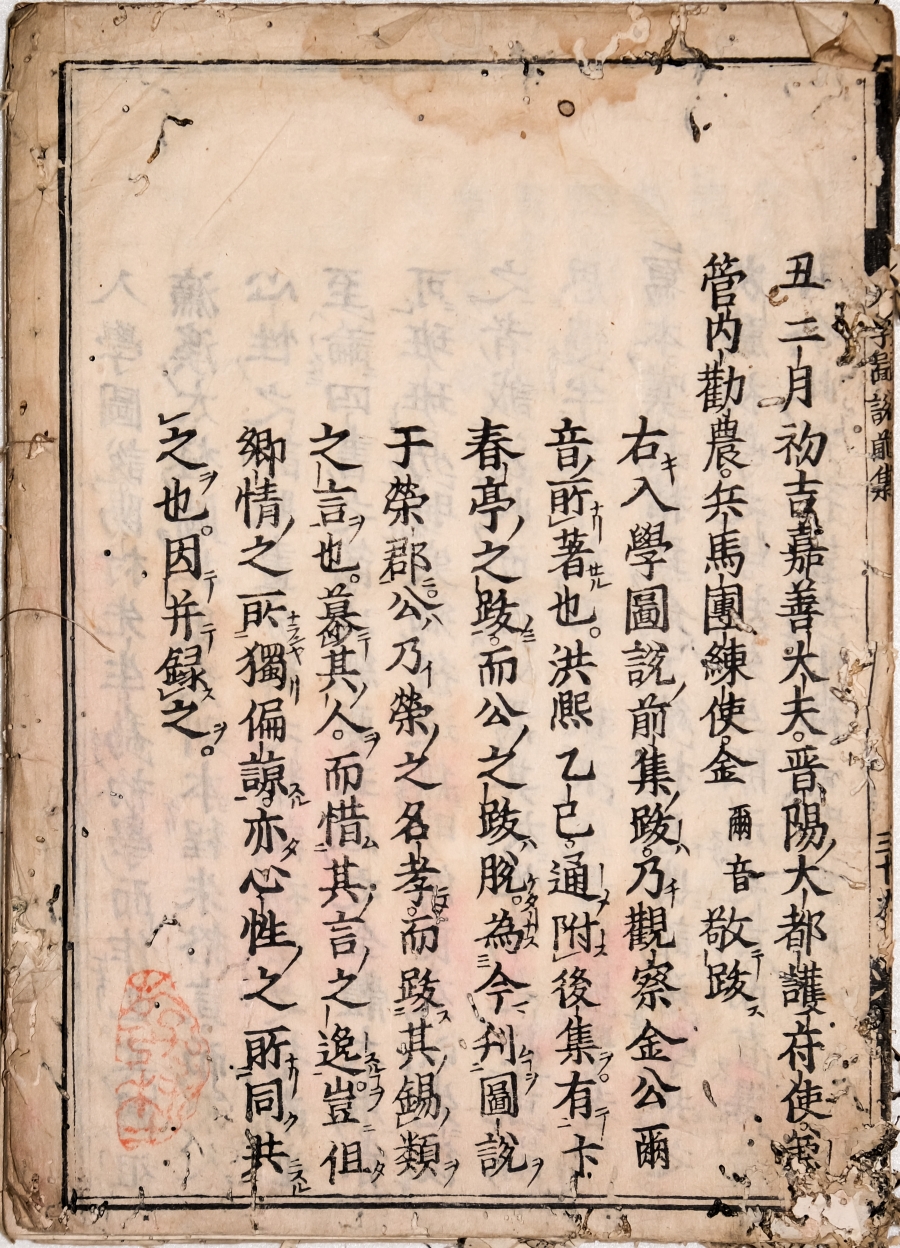 丑二月初吉嘉善大夫。晋陽大都護府使。兼
管内勸農。兵馬團練使。金爾音敬跋
右入學圖說前集跋。乃觀察金公爾
音所著也。洪熙乙巳。通附後集有卞
春亭之跋。而公之跋脫。為今刋圖說
于榮郡。公乃榮之名孝。而跋其錫類
之言也。慕其人。而惜其言之逸。豈但
鄉情之所獨偏諒。亦心性之所同共
之也。因并録之。
學圖說前集
三十